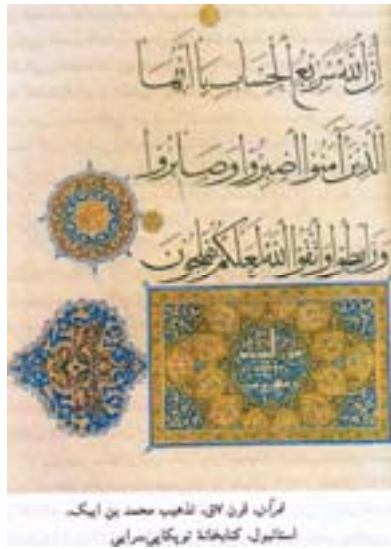 إن الله سريع الحساب يا أيها
الذين آمنوا اصبروا وصابروا
ورابطوا واتقوا الله لعلكم تفلحون
قرآن، قرن ۷ق، تذهیب محمد بن ایبک،
استانبول، کتابخانهٔ توپکاپی‌سرایی